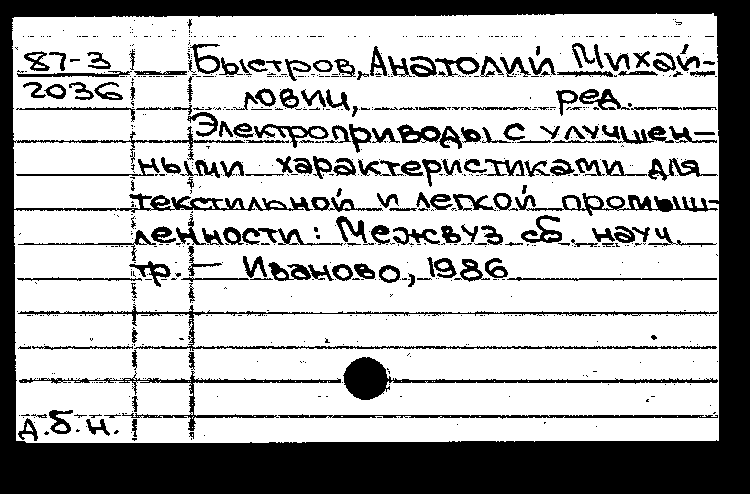 87-3 Быстров, Анатолий Михай-
2036 лович, ред.
Электроприводы с улучшен-
ными характеристиками для
текстильной и легкой промыш-
ленности: Межвуз сб. науч.
тр. — Иваново, 1986.
д.б.н.